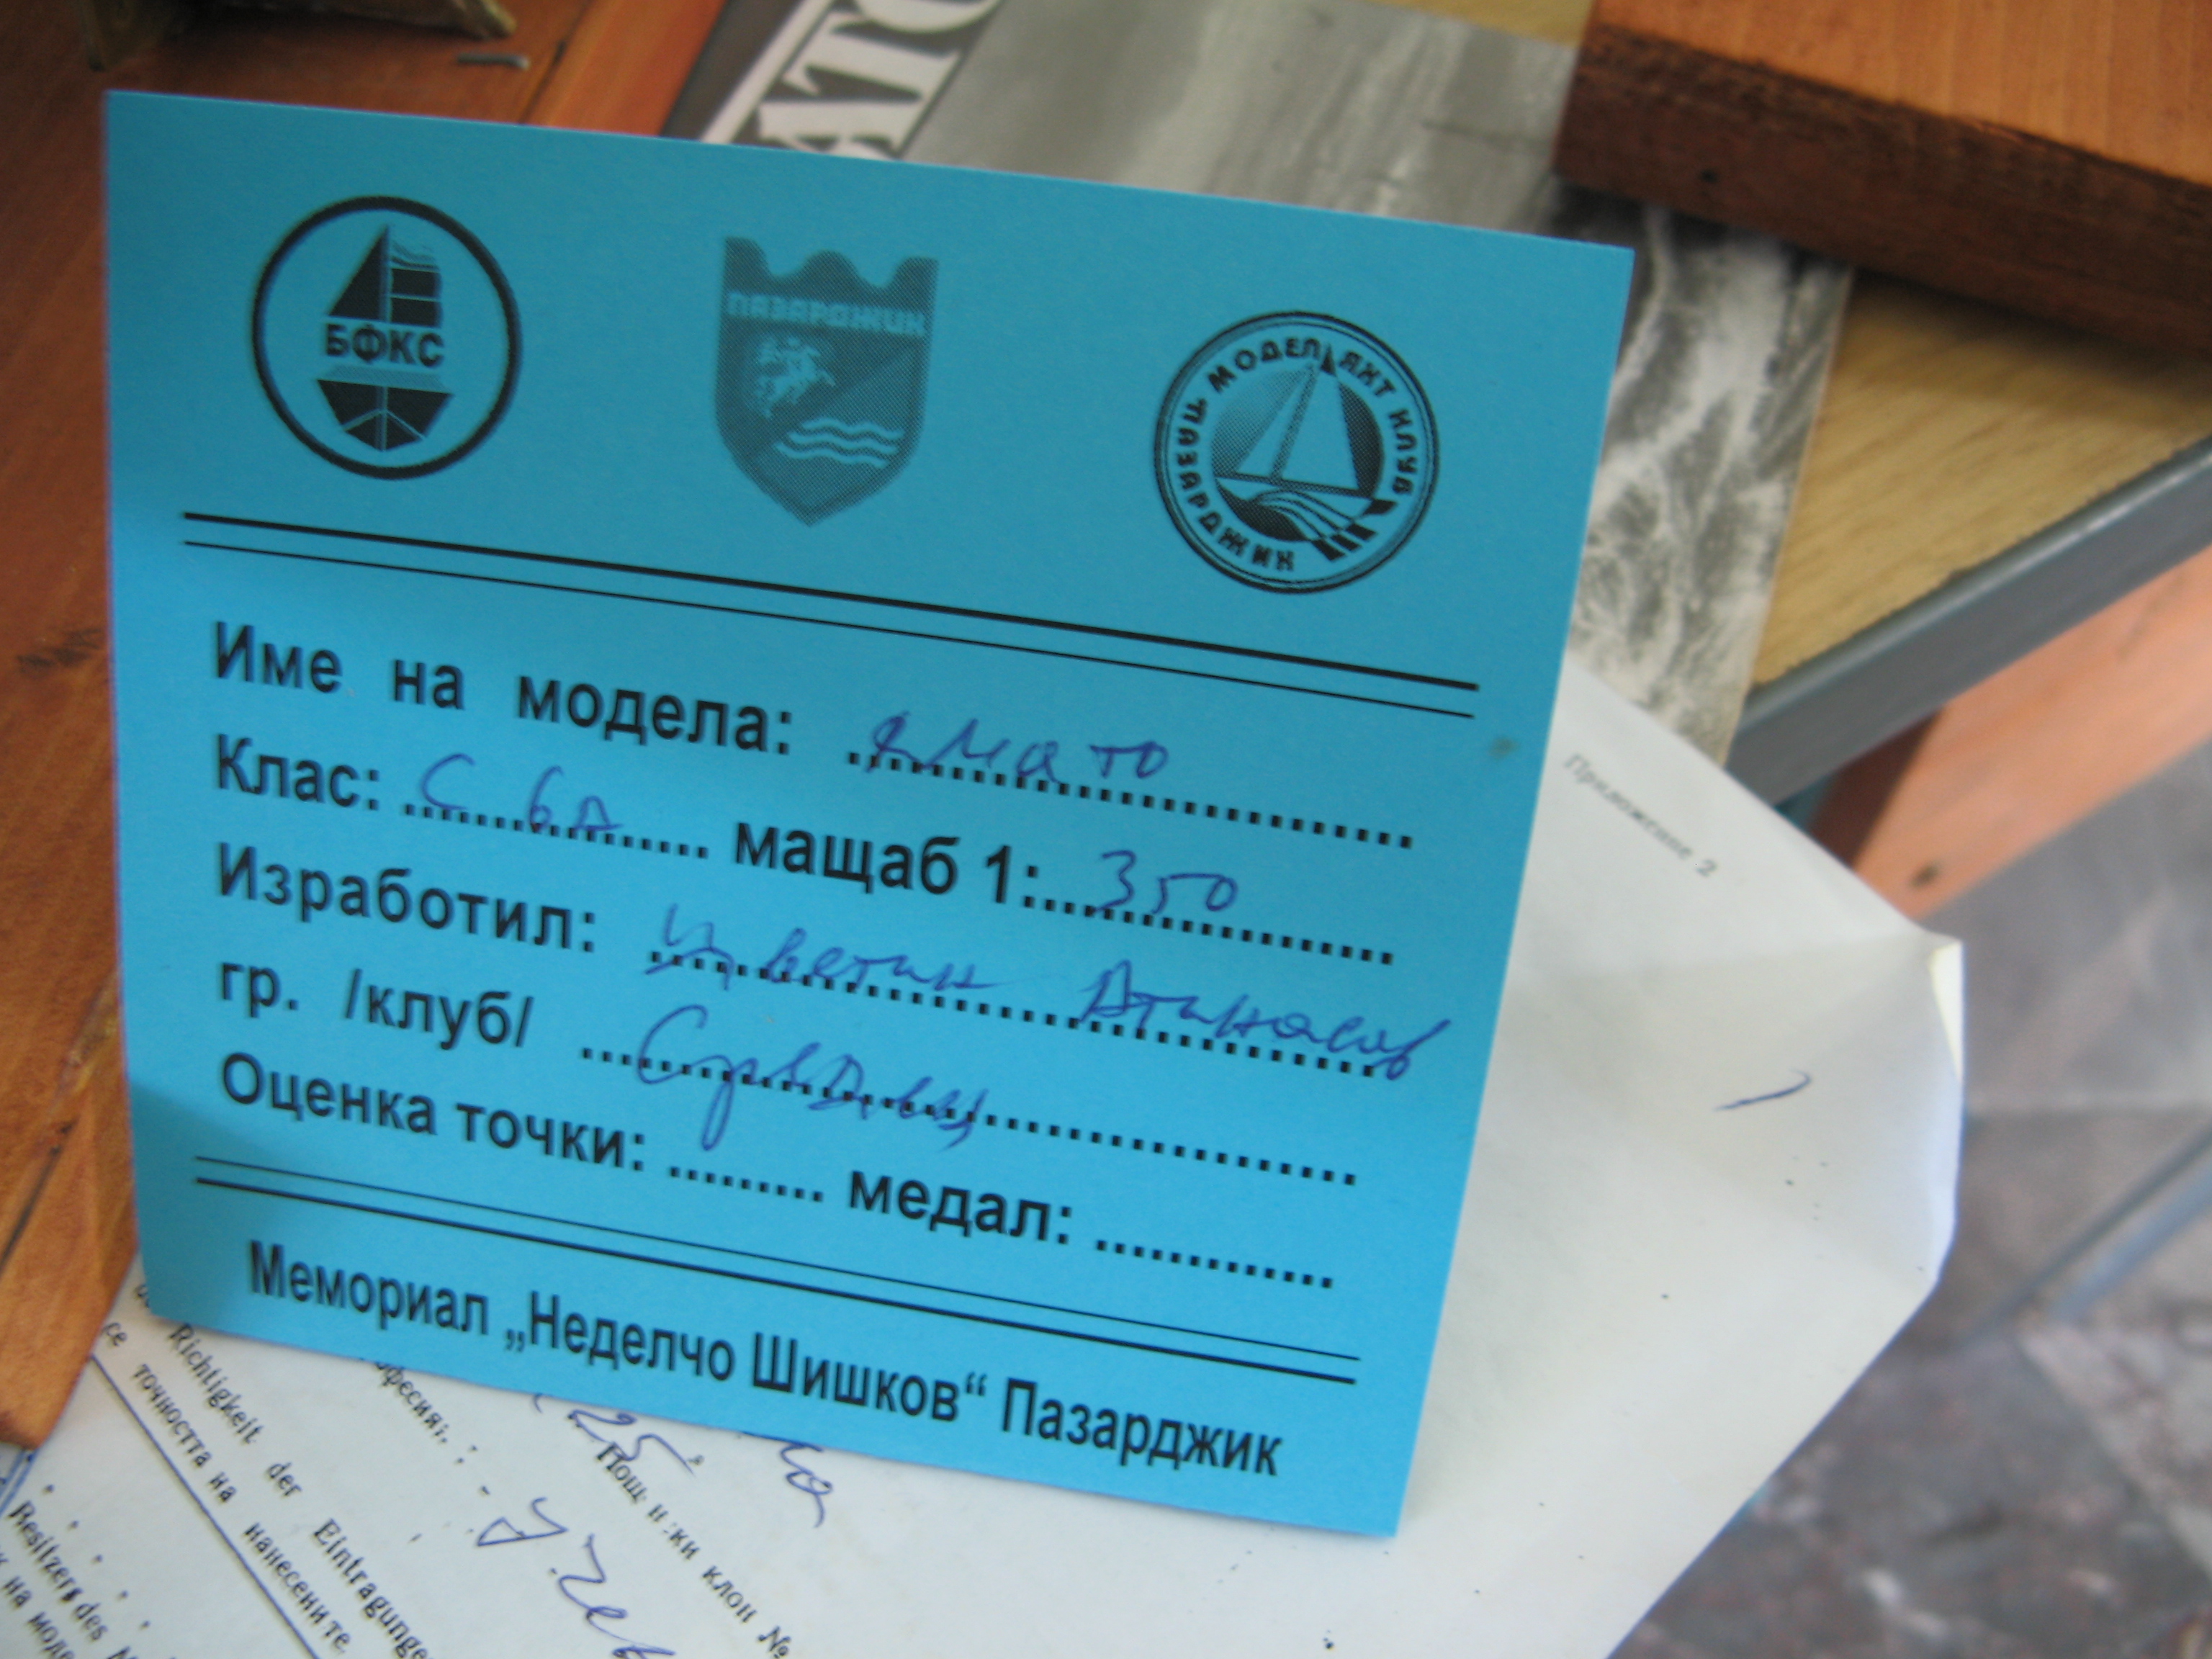 БФКС
ПАЗАРДЖИК
МОДЕЛ ЯХТ КЛУБ
ПАЗАРДЖИК
Име на модела: Ямато
Клас: С 6А мащаб 1: 350
Изработил: Цветин Атанасов
гр. /клуб/ Средец
Оценка точки: ......... медал: ............
Мемориал „Неделчо Шишков“ Пазарджик
Приложение 2
Richtigkeit der Eintragunge
се точността на нанесените
Besitzers des
на моде
25
Пощ ки клон №